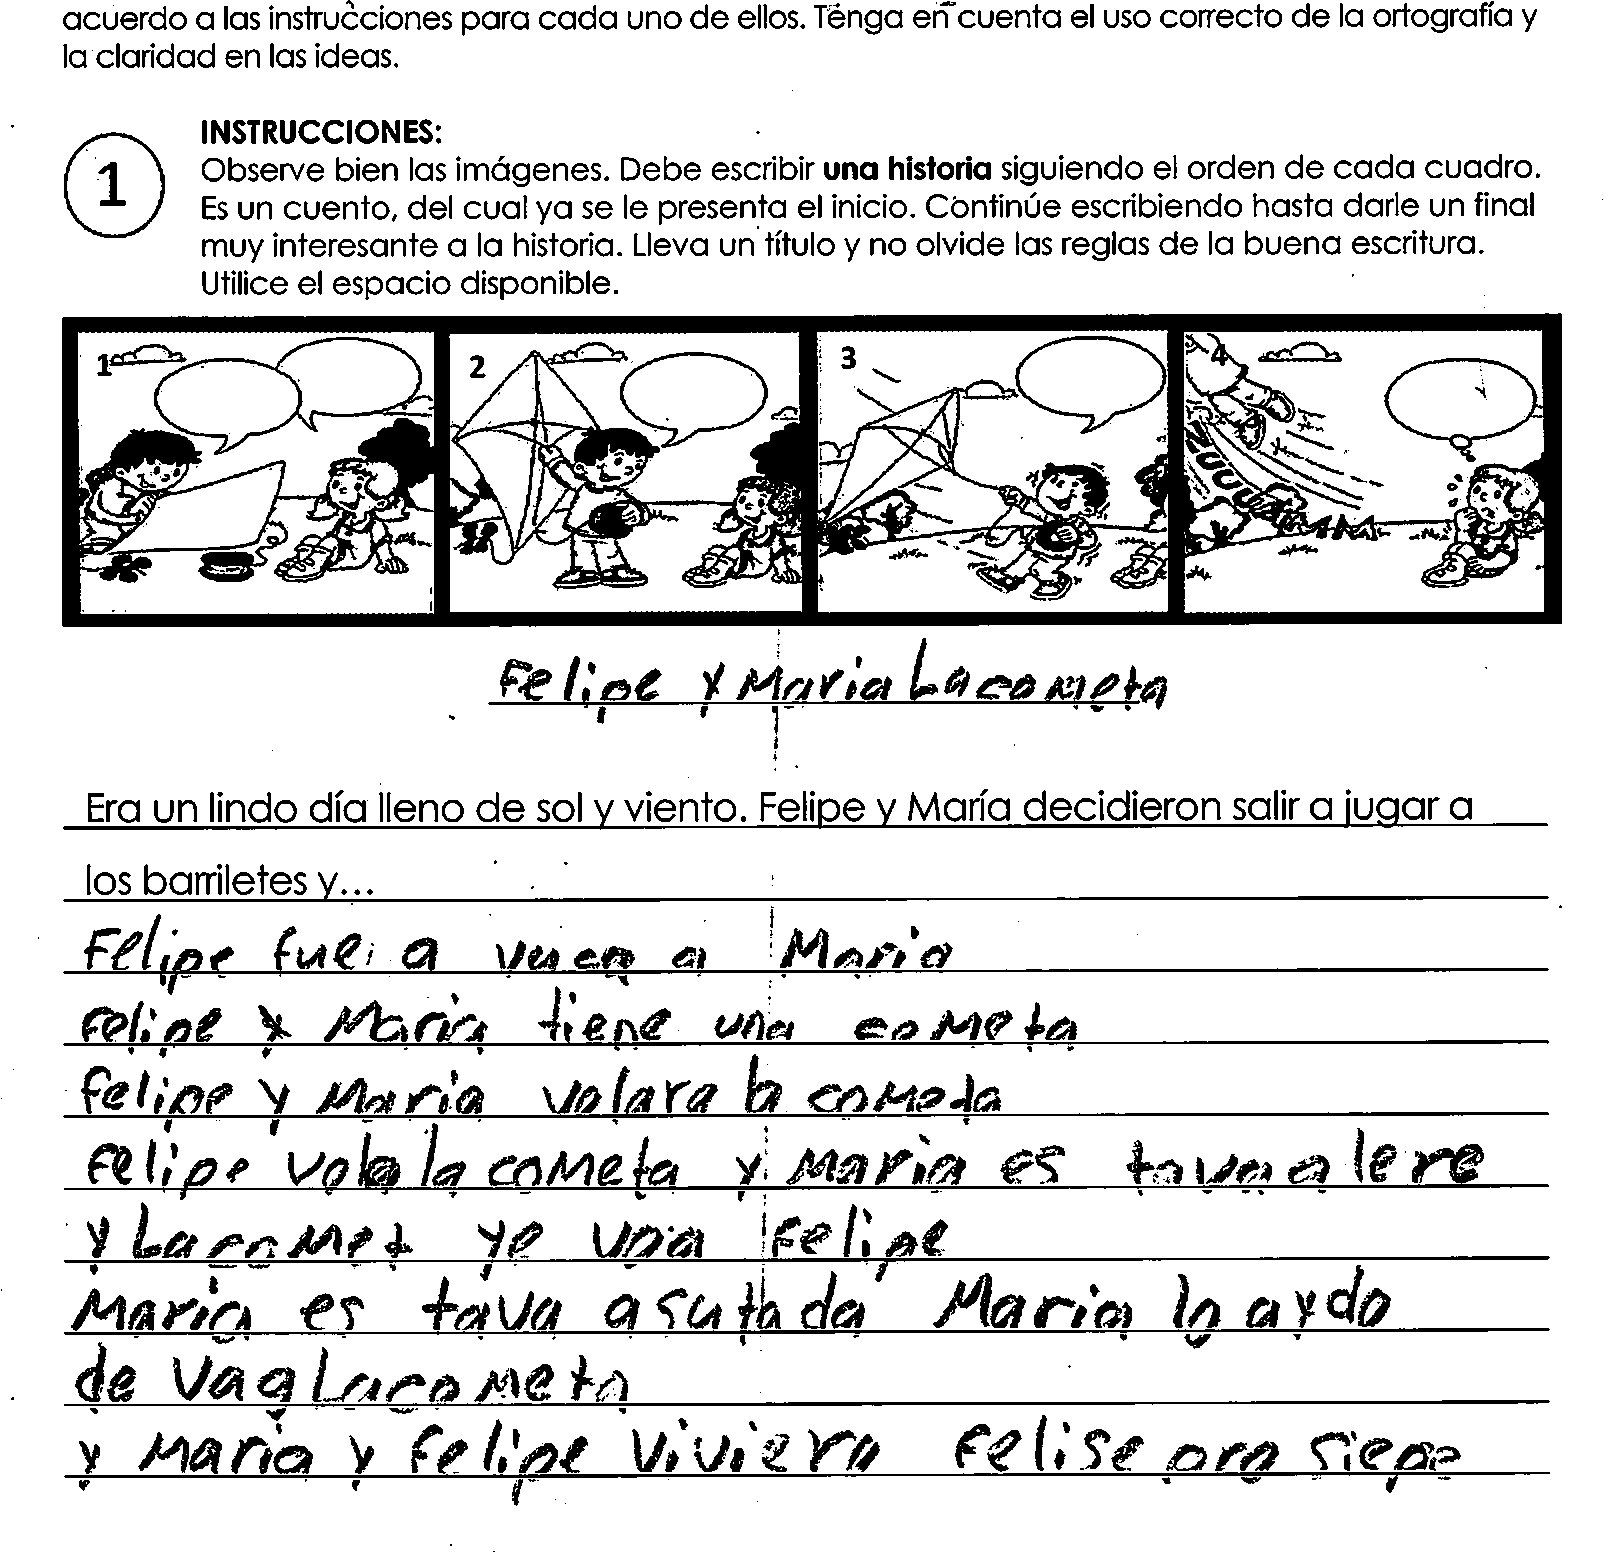 acuerdo a las instrucciones para cada uno de ellos. Tenga en cuenta el uso correcto de la ortografía y
la claridad en las ideas.
1
INSTRUCCIONES:
Observe bien las imágenes. Debe escribir una historia siguiendo el orden de cada cuadro.
Es un cuento, del cual ya se le presenta el inicio. Continúe escribiendo hasta darle un final
muy interesante a la historia. Lleva un título y no olvide las reglas de la buena escritura.
Utilice el espacio disponible.
1 2 3 4
Felipe y Maria La cometa
Era un lindo día lleno de sol y viento. Felipe y María decidieron salir a jugar a
los barriletes y...
Felipe fue a a Maria
Felipe y Maria tiene una cometa
Felipe y Maria volara la cometa
Felipe vola la cometa y Maria es tava alere
y La comet ye Felipe
Maria es tava asutada Maria lo aydo
de vag La cometa
y Maria y Felipe viviero Felise para siepe